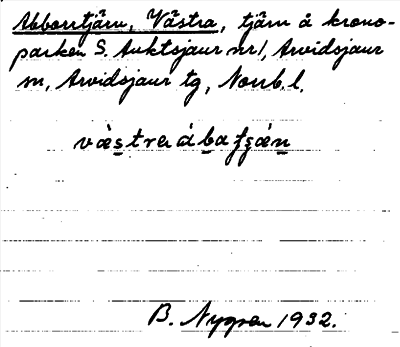 Abborrtjärn, Västra, tjärn å krono-
parken S. Auktsjaur nr 1, Arvidsjaur
sn, Arvidsjaur tg, Norrb. l.
B. Nygren 1932.